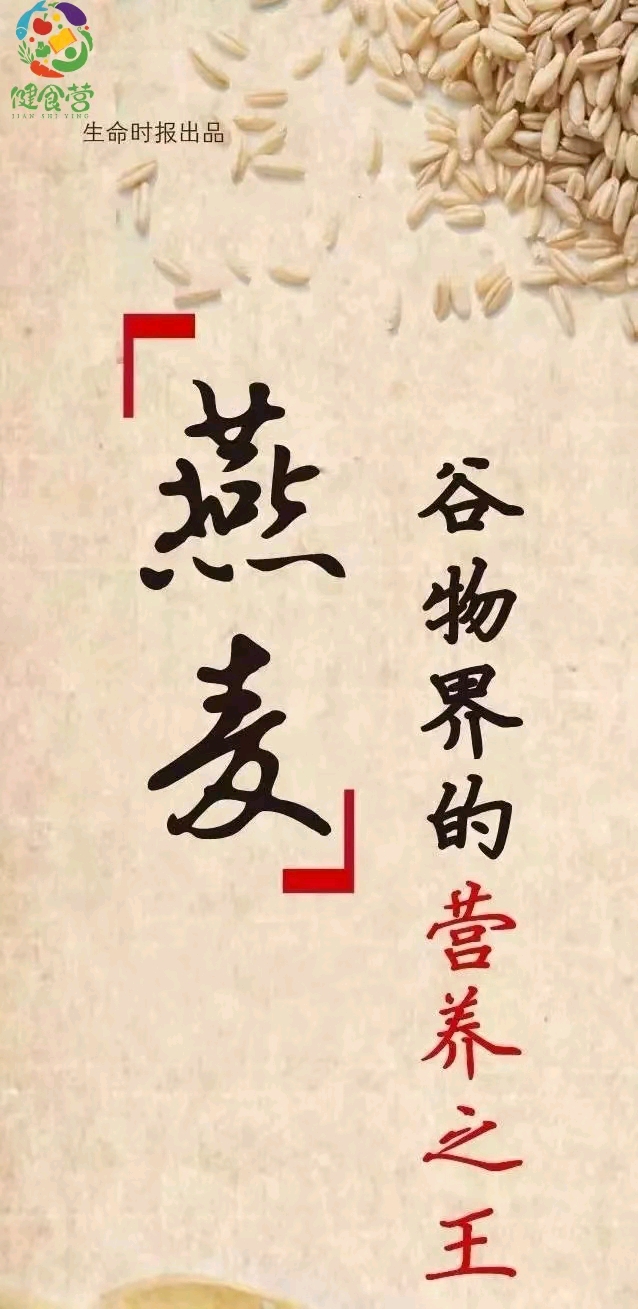 健食营
JIAN SHI YING
生命时报出品
「燕麦」
谷物界的营养之王